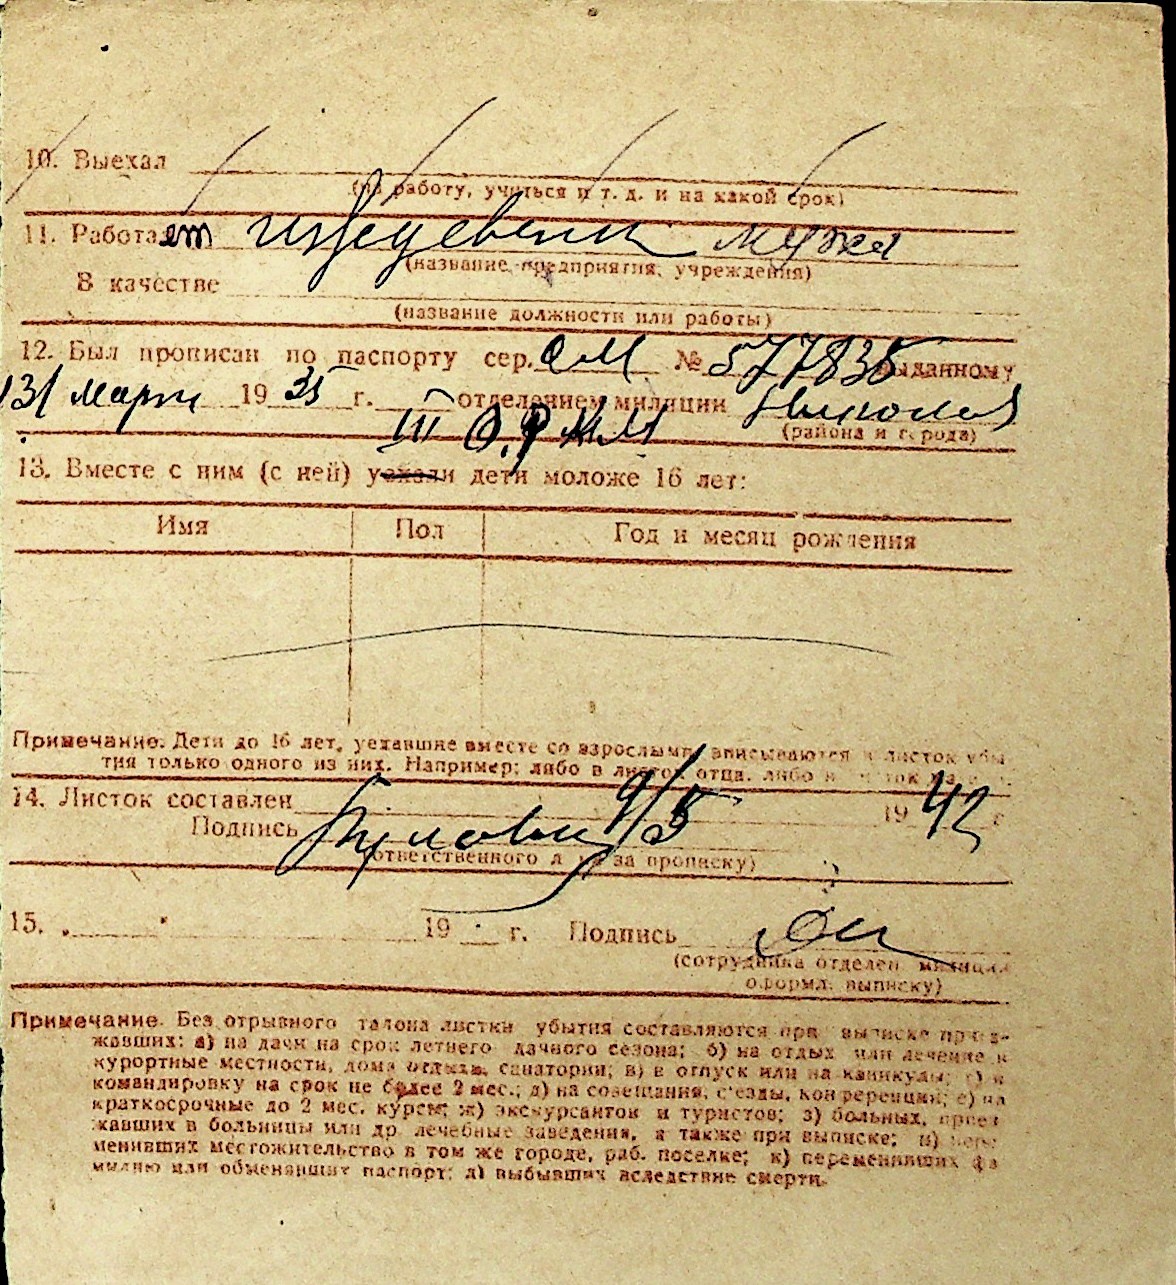 10. Выехал
(на работу, учиться и т. д. и на какой срок)
11. Работает иждевении мужа
(название предприятия, учреждения)
В качестве
(название должности или работы)
12. Был прописан по паспорту сер. СМ № 577835 выданному
31 марта 1935 г. отделением милиции Николаев
III О.Р.К.М (района и города)
13. Вместе с ним (с ней) уехали дети моложе 16 лет:
Имя Пол Год и месяц рождения
Примечание. Дети до 16 лет, уехавшие вместе со взрослыми, вписываются в листок убы-
тия только одного из них. Например: либо в листок отца, либо в листок
14. Листок составлен 9/5 1942 г.
Подпись
(ответственного лица за прописку)
15. 19 г. Подпись
(сотрудника отделен. милиции
оформл. выписку)
Примечание. Без отрывного талона листки убытия составляются при выписке приез-
жавших: а) на дачи на срок летнего дачного сезона; б) на отдых или лечение в
курортные местности, дома отдыха, санатории; в) в отпуск или на каникулы; г) в
командировку на срок не более 2 мес.; д) на совещания, с'езды, конференции; е) на
краткосрочные до 2 мес. курсы; ж) экскурсантов и туристов; з) больных, приез-
жавших в больницы или др. лечебные заведения, а также при выписке; и) пере-
менивших местожительство в том же городе, раб. поселке; к) переменивших фа-
милию или обменявших паспорт; л) выбывших вследствие смерти.